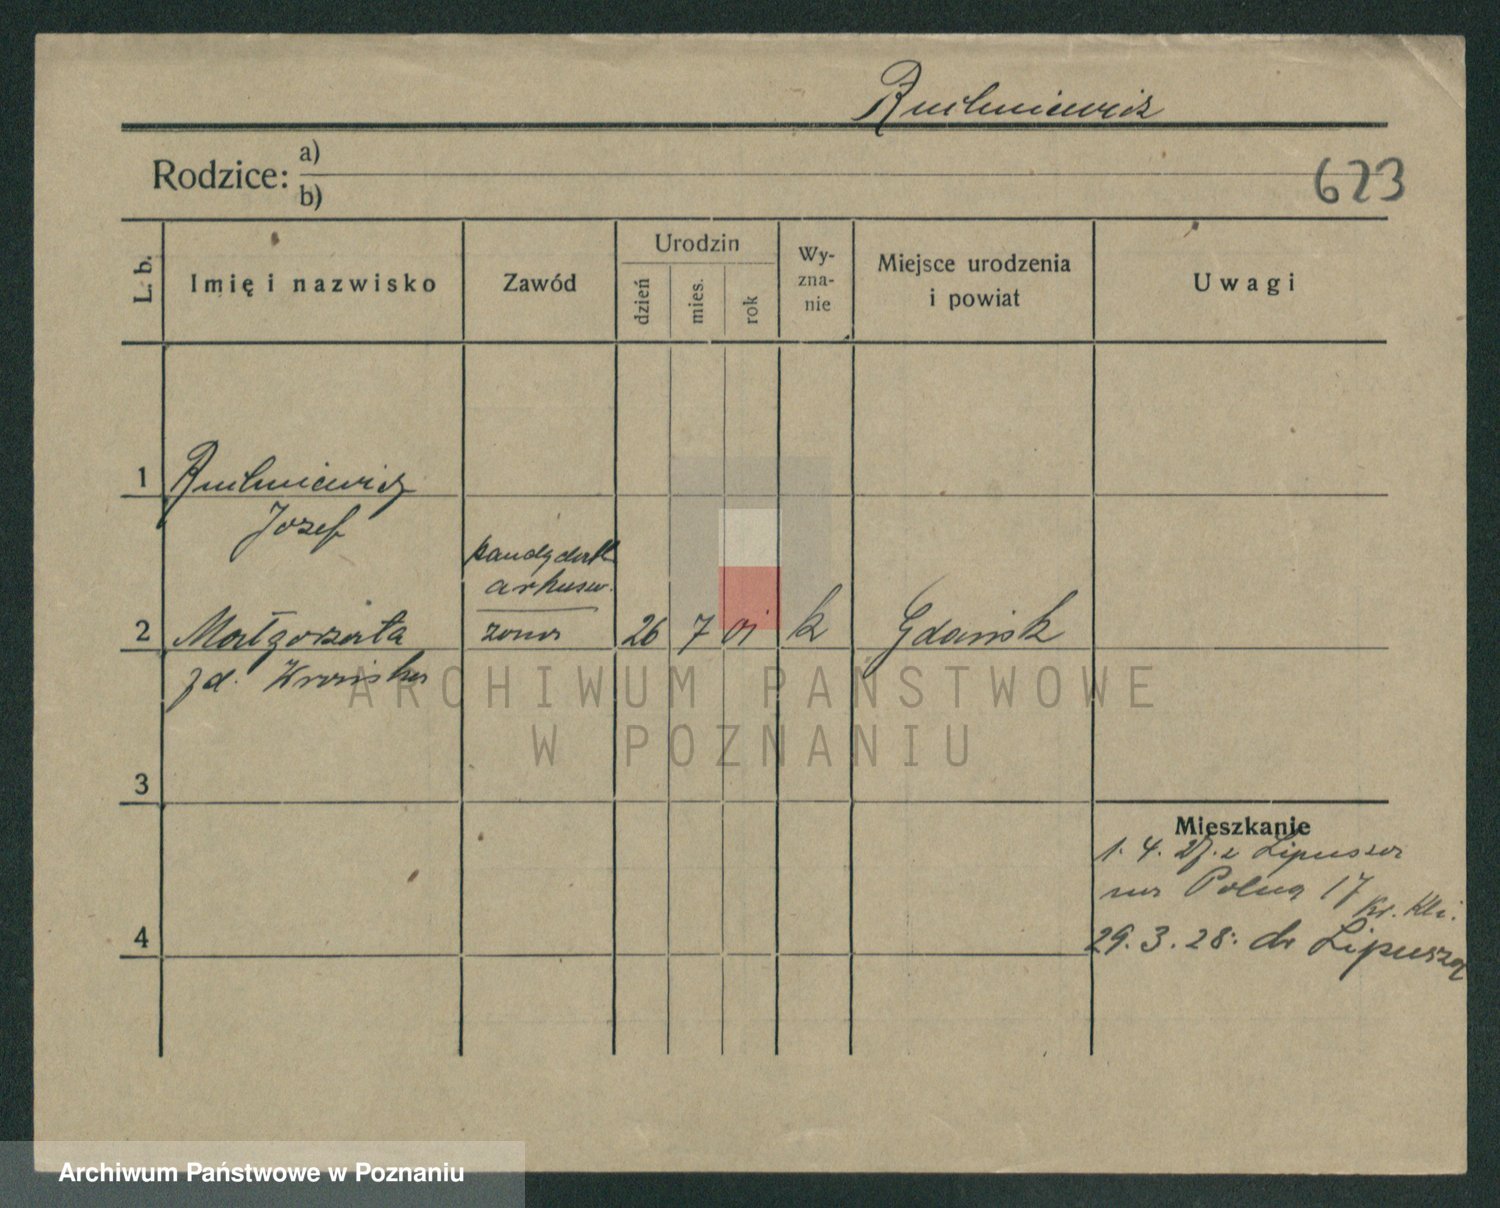 Ruchniewicz
Rodzice: a)
b)
623
L. b.
Imię i nazwisko
Zawód
Urodzin
dzień
mies.
rok
Wy-
zna-
nie
Miejsce urodzenia
i powiat
Uwagi
1
Ruchniewicz
Józef
2
Małgorzata
żona
26 7 01 k Gdańsk
zd.
ARCHIWUM PAŃSTWOWE
W POZNANIU
3
Mieszkanie
1. 4. 27. z Lipusza
na Polną 17
4
29. 3. 28. do Lipusza
Archiwum Państwowe w Poznaniu